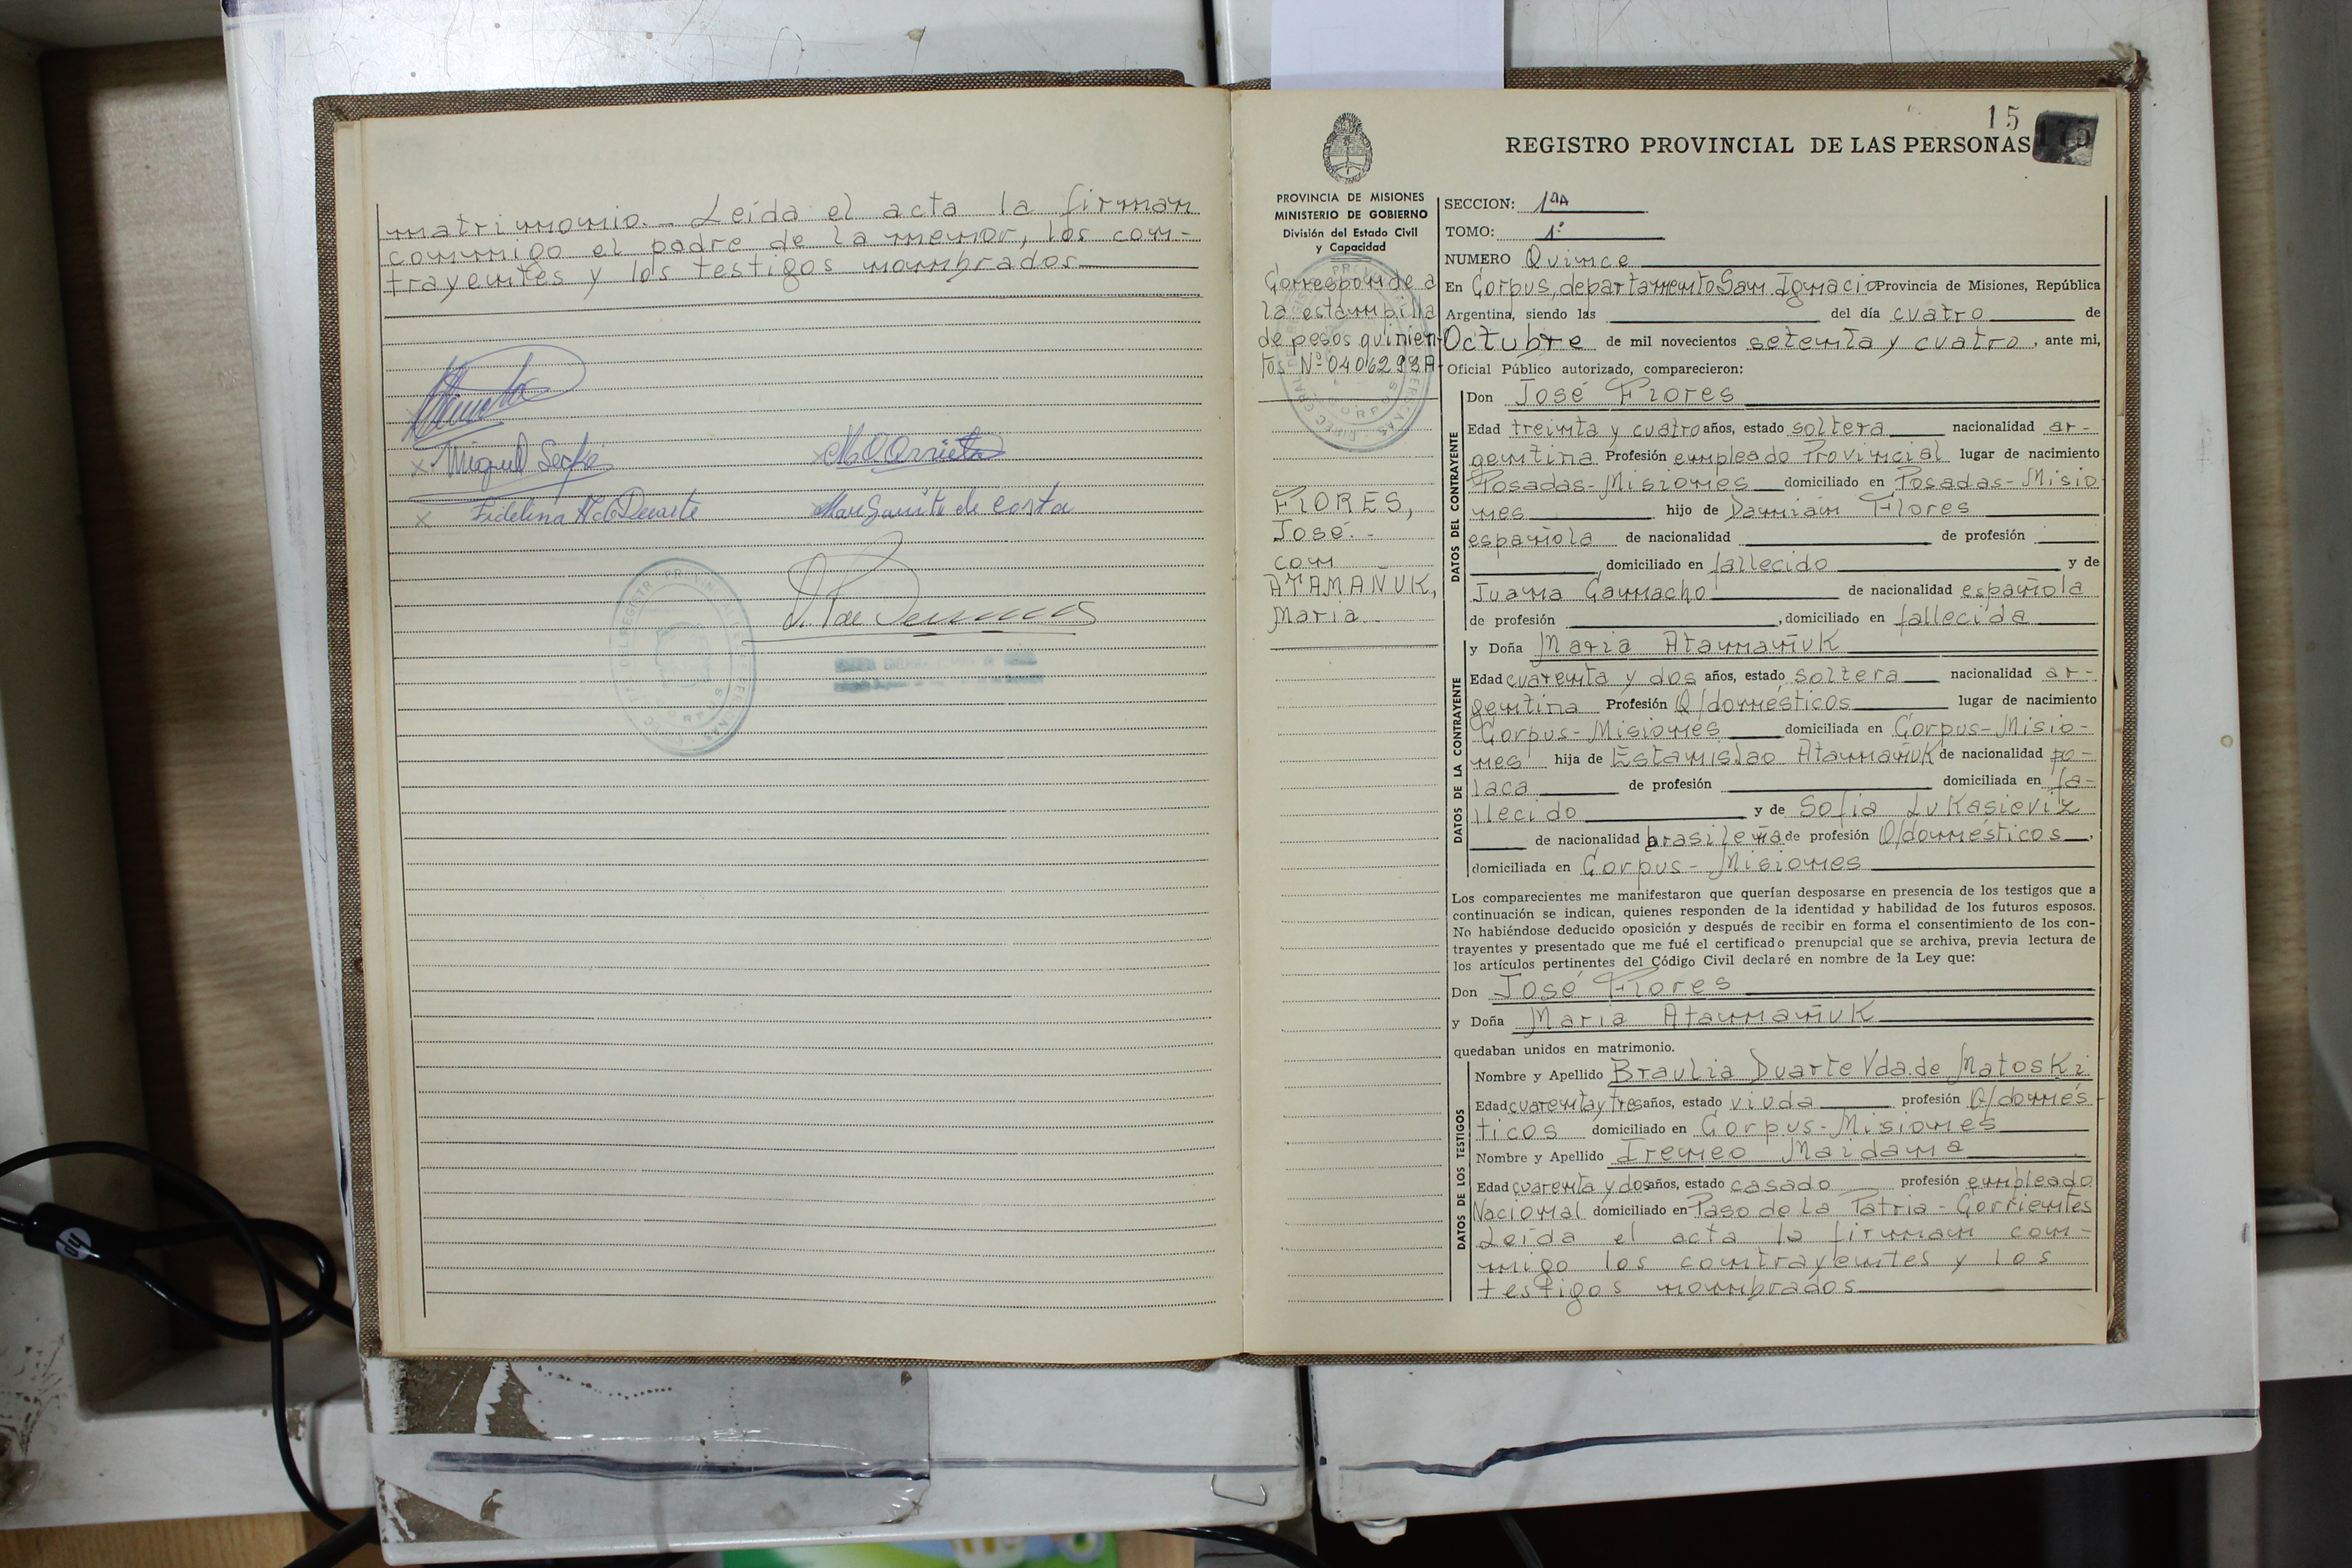 matrimonio.- Leída el acta la firman
conmigo el padre de la menor, los con-
trayentes y los testigos nombrados
x Miguel
x Fidelina
Margarita de costa
15
REGISTRO PROVINCIAL DE LAS PERSONAS
PROVINCIA DE MISIONES
MINISTERIO DE GOBIERNO
División del Estado Civil
y Capacidad
Corresponde a
la estampilla
de pesos quinien-
tos Nº 0406293A-
FLORES,
José.-
con
ATAMAÑUK,
Maria
SECCION: 1ra
TOMO: 1º
NUMERO Quince
En Corpus, departamento San Ignacio Provincia de Misiones, República
Argentina, siendo las del día cuatro de
Octubre de mil novecientos setenta y cuatro, ante mi,
Oficial Público autorizado, comparecieron:
DATOS DEL CONTRAYENTE
Don José Flores
Edad treinta y cuatro años, estado soltera nacionalidad ar-
gentina Profesión empleado Provincial lugar de nacimiento
Posadas-Misiones domiciliado en Posadas-Misio
nes hijo de Damián Flores
española de nacionalidad de profesión
, domiciliado en fallecido y de
Juana Camacho de nacionalidad española
de profesión , domiciliado en fallecida
DATOS DE LA CONTRAYENTE
y Doña Maria Atamañuk
Edad cuarenta y dos años, estado soltera nacionalidad ar-
gentina Profesión Q/domésticos lugar de nacimiento
Corpus-Misiones domiciliada en Corpus-Misio-
nes hija de Estanislao Atamañuk de nacionalidad po-
laca de profesión domiciliada en fa-
llecido y de Sofia Lukasieviz
de nacionalidad brasileña de profesión Q/domésticos,
domiciliada en Corpus-Misiones
Los comparecientes me manifestaron que querían desposarse en presencia de los testigos que a
continuación se indican, quienes responden de la identidad y habilidad de los futuros esposos.
No habiéndose deducido oposición y después de recibir en forma el consentimiento de los con-
trayentes y presentado que me fué el certificado prenupcial que se archiva, previa lectura de
los artículos pertinentes del Código Civil declaré en nombre de la Ley que:
Don José Flores
y Doña Maria Atamañuk
quedaban unidos en matrimonio.
DATOS DE LOS TESTIGOS
Nombre y Apellido Braulia Duarte Vda. de Matoski
Edad cuarenta y tres años, estado viuda profesión Q/domés-
ticos domiciliado en Corpus-Misiones
Nombre y Apellido Ireneo Maidana
Edad cuarenta y dos años, estado casado profesión empleado
Nacional domiciliado en Paso de La Patria-Corrientes
Leída el acta la firman con-
migo los contrayentes y los
testigos nombrados